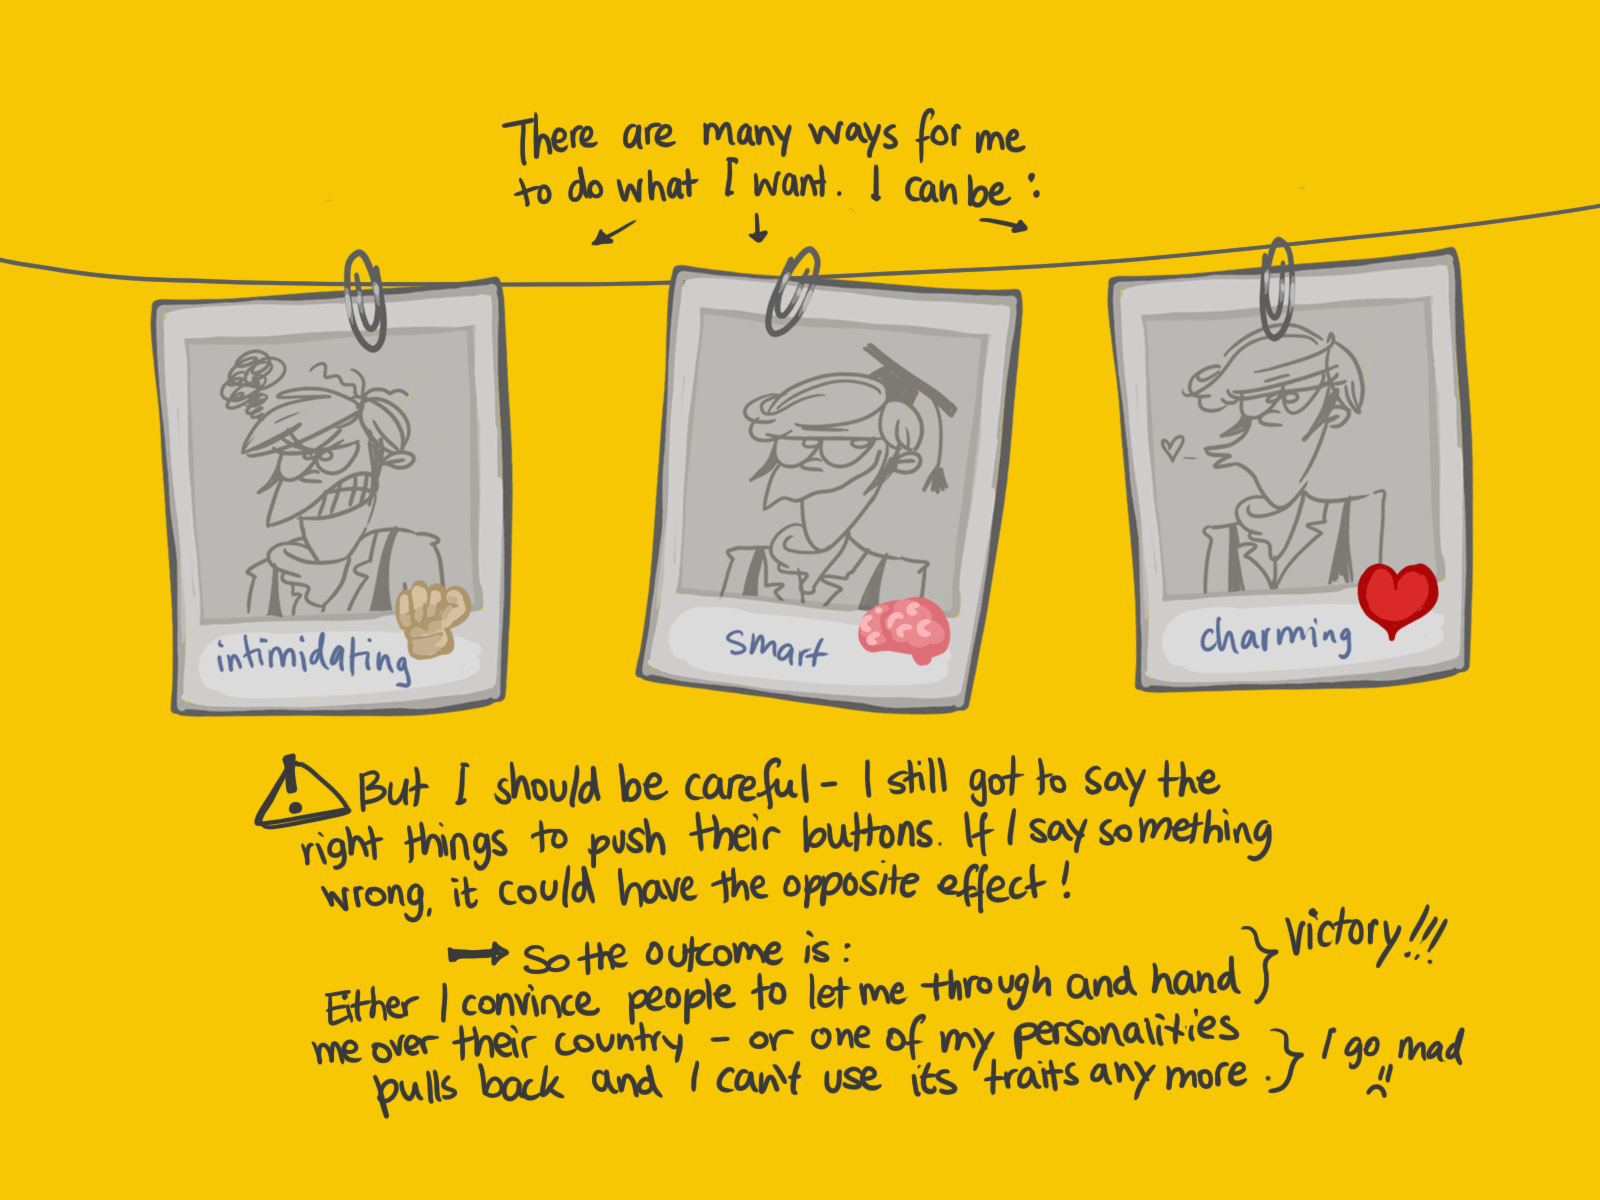 There are many ways for me
to do what I want. I can be :
intimidating
smart
charming
But I should be careful - I still got to say the
right things to push their buttons. If I say something
wrong, it could have the opposite effect!
So the outcome is:
Either I convince people to let me through and hand
me over their country - or one of my personalities
pulls back and I can't use its traits any more.
Victory!!!
I go mad